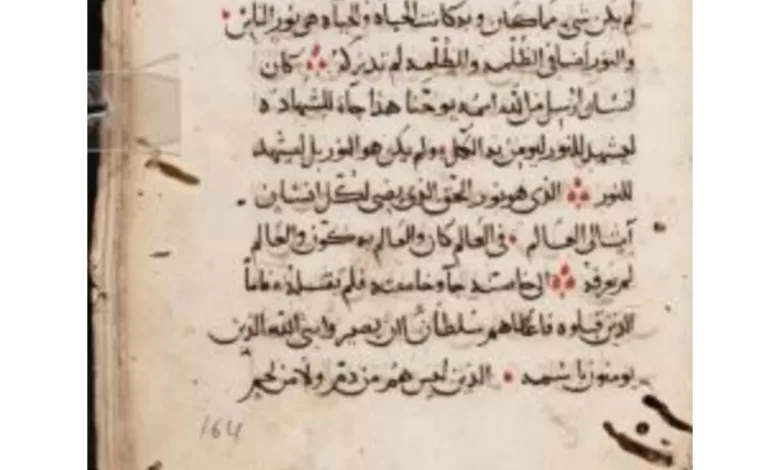 لم يكن شي مما كان وبه كانت الحياه والحياه هي نور الناس
والنور اضا في الظلمه والظلمه لم تدركه كان
انسان ارسل من الله اسمه يوحنا هذا جاء للشهاده
ليشهد للنور ليومن به الكل ولم يكن هو النور بل ليشهد
للنور الذي هو نور الحق الذي يضي لكل انسان
آتيا الى العالم في العالم كان والعالم به كون والعالم
لم يعرفه الى خاصته جآ وخاصته فلم تقبله فاماً
الذين قبلوه فاعطاهم سلطانٌ ان يصيروا بنى الله الذين
يومنون باسمه الذين ليس هم من دم ولا من لحم
164